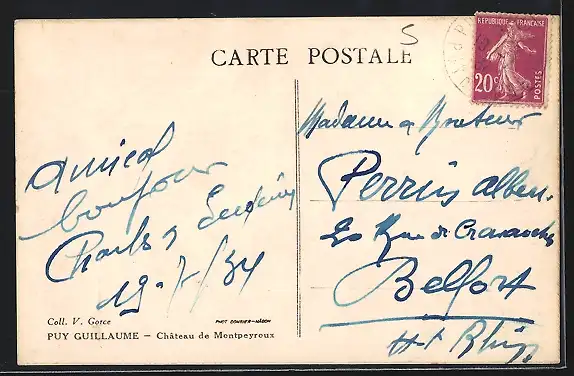 CARTE POSTALE
S
REPUBLIQUE FRANÇAISE
20c
POSTES
Amical
bonjour
Charles
19-7/34
Madame &
Perrin Albert
20 Rue de Cravanche
Belfort
Ht Rhin
Coll. V. Gorce
PUY GUILLAUME — Château de Montpeyroux